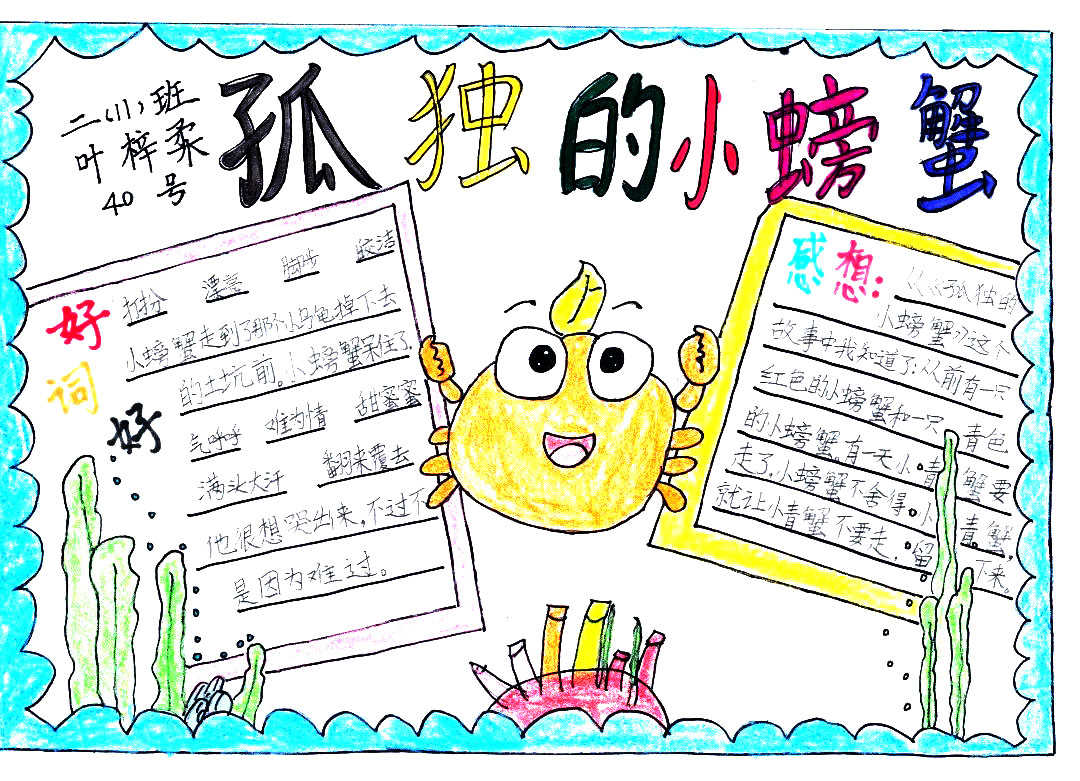 孤独的小螃蟹
二(11)班
叶梓柔
40号
好词好
打扮 漂亮 脚步 皎洁
小螃蟹走到了那个小乌龟掉下去
的土坑前。小螃蟹呆住了。
气呼呼 难为情 甜蜜蜜
满头大汗 翻来覆去
他很想哭出来,不过不
是因为难过。
感想:
《《孤独的
小螃蟹》这个
故事中我知道了:从前有一只
红色的小螃蟹和一只青色
的小螃蟹。有一天小青蟹要
走了,小螃蟹不舍得。小青蟹,
就让小青蟹不要走,留下来。